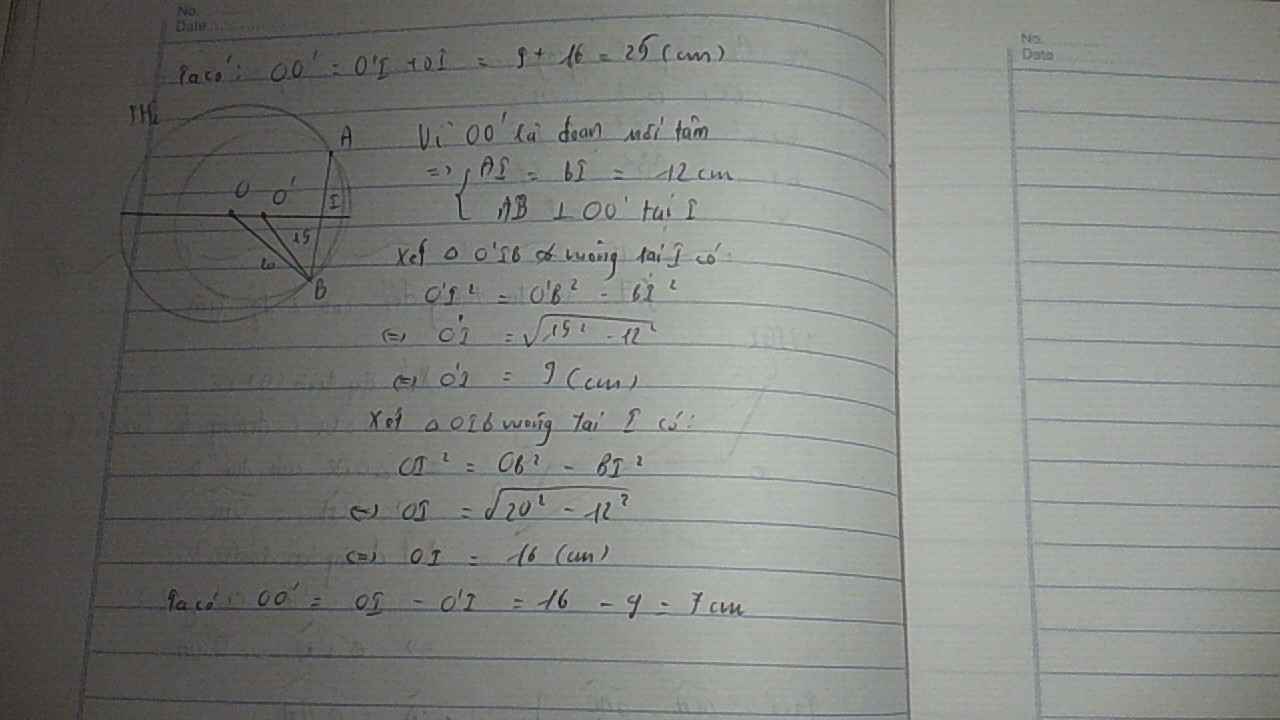 No.
Date
Ta có: OO' = O'I + OI = 9 + 16 = 25 (cm)
TH2
A
O
O'
I
15
B
Vì OO' là đoạn nối tâm
=> { AI = BI = 12 cm
AB ⊥ OO' tại I
Xét Δ O'IB vuông tại I có:
O'I² = O'B² - BI²
<=> O'I = √15² - 12²
<=> O'I = 9 (cm)
Xét Δ OIB vuông tại I có:
OI² = OB² - BI²
<=> OI = √20² - 12²
<=> OI = 16 (cm)
Ta có: OO' = OI - O'I = 16 - 9 = 7 cm
No.
Date